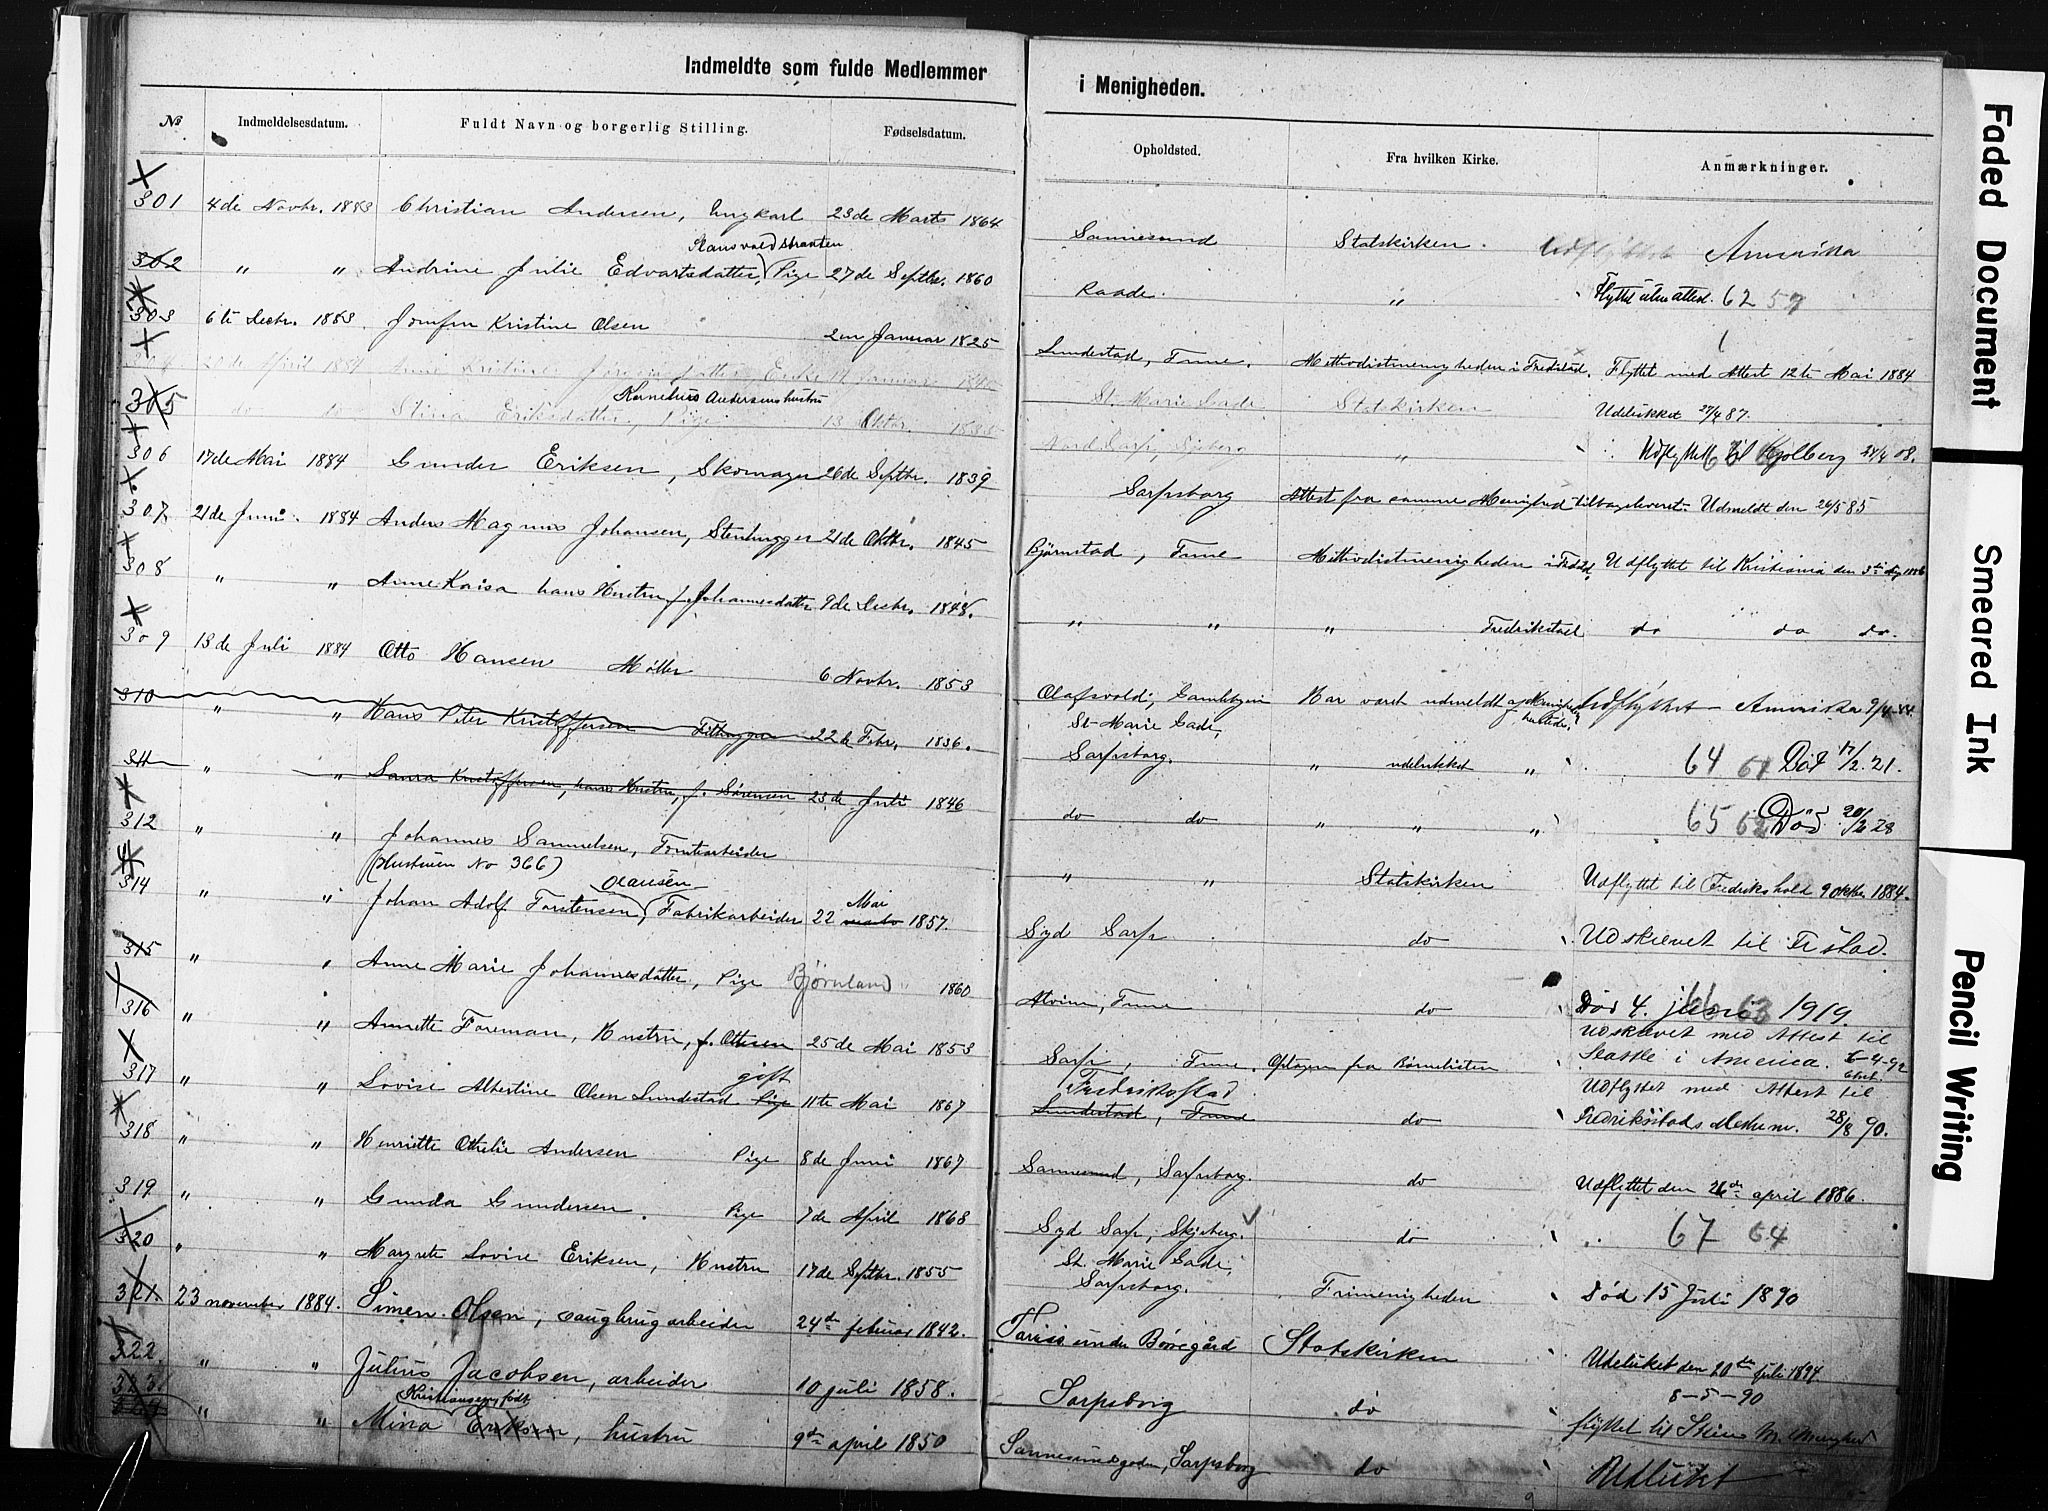 Indmeldte som fulde Medlemmer
i Menigheden.
№ Indmeldelsesdatum. Fuldt Navn og borgerlig Stilling. Fødselsdatum.
Opholdsted. Fra hvilken Kirke. Anmærkninger.
301 4de Novbr. 1883 Christian Andersen, Ungkarl 23de Marts 1864
Sannesund Statskirken. Udflyttet Amerika
302 " " Andrine Julie Edvartsdatter, Pige 27de Septbr. 1860
Raade. " Flyttet uten attest. 62 57
303 6te Decbr. 1883. Jomfru Kristine Olsen 2en Januar 1825
Sundestad, Tune. Methodistmenigheden i Fredstad. Flyttet med Attest 12te Mai 1884
304 20de April 1884 Anne Kristine Enke Januar
St. Marie Gade. Statskirken Udelukket 27/4 87.
Kornelius Andersens hustru
305 do do Stina Eriksdatter, Pige 13 Oktbr.
Nord Sarp, Skjeberg " Udflyttet til Kjølberg 24/4 08.
306 17de Mai 1884 Gunder Eriksen, Skomager 26de Septbr. 1839
Sarpsborg Attest fra samme Menighed tilbageleveret. Udmeldt den 26/5 85
307 21de Juni 1884 Anders Magnus Johansen, Stenhugger 21de Oktbr. 1845
Bjørnstad, Tune Methodistmenigheden i Fredstd. Udflyttet til Kristiania den 3te 1886
308 " " Anne Kaisa hans Hustru f. Johannesdatter 9de Decbr. 1848.
" " " Fredrikstad do do do.
309 13de Juli 1884 Otto Hansen Møller 6 Novbr. 1853
Olafsvold, Gamlebyen Har været udmeldt af Udflyttet Amerika 9/4
310 " " Hans Peter Kristoffersen 22de Febr. 1836.
St. Marie Gade,
Sarpsborg. " udelukket " 64 61 Död 17/2. 21.
311 " " Laura Kristoffersen, hans Hustru, f. Sørensen 23de Juli 1846
do do " " " 65 62 Död 20/2 28
312 " " Johannes Samuelsen, Tomtearbeider
(Hustruen No 366)
" " Statskirken Udflyttet til Fredrikshald 9 oktbr. 1884.
Olausen
314 " " Johan Adolf Torstensen, Fabrikarbeider 22 Mai 1857.
Syd Sarp do Udskrevet til Fr.stad.
315 " " Anne Marie Johannesdatter, Pige Bjørnland " 1860
Alvim, Tune do Död 4. juni 66 63 1919.
316 " " Annette Foreman, Hustru, f. Ottesen 25de Mai 1853
Sarp, Tune. Optagen fra Børnelisten
Udskrevet med Attest til
Seattle i America. 6-4-92
gift
317 " " Lovise Albertine Olsen Sundestad Pige 11te Mai 1867
Fredriksstad
Sundestad, Tune do
Udflyttet med Attest til
Fredriksstads Meth.m. 28/8 90.
318 " " Henriette Othelie Andersen Pige 8de Juni 1867
Sannesund, Sarpsborg. do Udflyttet den 26de april 1886.
319 " " Gunda Gundersen Pige 7de April 1868
Syd Sarp, Skjeberg. do 67 64
320 " " Margrete Lovise Eriksen, Hustru 17de Septbr. 1855
St. Marie Gade,
Sarpsborg. Frimenigheden Død 15 Juli 1890
321. 23 november 1884. Simen Olsen, saugbrugarbeider 24de februar 1842.
under Borregård Statskirken Udelukket den 20de juli 1894
322. " " Julius Jacobsen, arbeider 10 juli 1858.
Sarpsborg do 8-5-90
flyttet til M. Menighed
Kristiansen, født
323. " " Mina Eriksen, hustru 9de april 1850
Sannesundsgaden, Sarpsborg do Udelukket
Faded Document
Smeared Ink
Pencil Writing